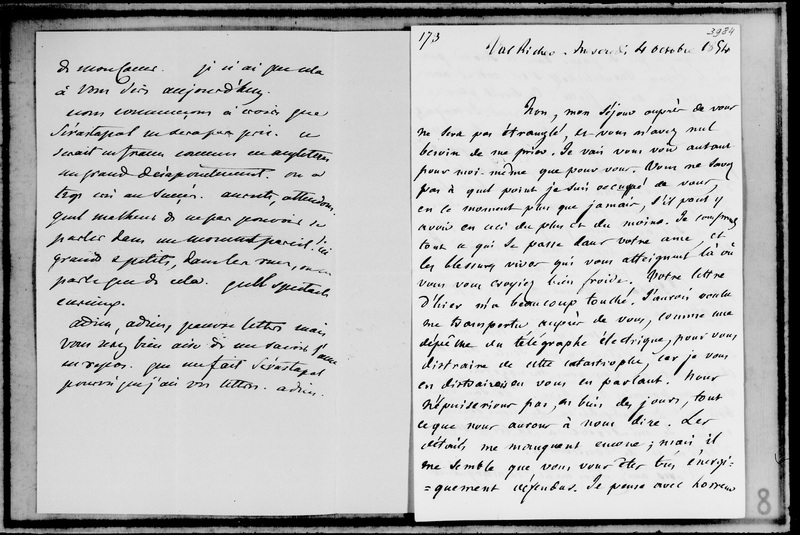 à vous dire aujourd'hui.
nous commençons à croire que
Sévastopol ne sera pas pris. ce
serait en france comme en angleterre
un grand désappointement. on a
trop cru au succès.
quel malheur de ne pas pouvoir se
parler dans un moment pareil! ici
grands & petits, dans les rues, on ne
parle que de cela. quel spectacle
curieux.
adieu, adieu, pauvre lettre mais
vous
que me fait Sévastopol
pourvu que j'aie vos lettres. adieu.
173
3984
Val Richer. Mercredi 4 octobre 1854
Non, mon séjour auprès de vous
ne sera pas étranglé, et vous n'avez nul
besoin de me prier. Je vais vous voir autant
pour moi-même que pour vous. Vous ne savez
pas à quel point je suis occupé de vous,
en ce moment plus que jamais, s'il peut y
avoir en ceci du plus et du moins. Je comprends
tout ce qui se passe dans votre ame, et
les blessures vives qui vous atteignent là où
vous vous croyiez bien froide. Votre lettre
d'hier m'a beaucoup touché. J'aurois voulu
me transporter auprès de vous, comme une
dépêche du télégraphe électrique, pour vous
distraire de cette catastrophe, car je vous
en distrairois en vous en parlant. Nous
n'épuiserions pas, en bien des jours, tout
ce que nous aurons à nous dire. Les
détails me manquent encore; mais il
me semble que vous vous êtes très énergi-
=quement défendus. Je pense avec horreur
8